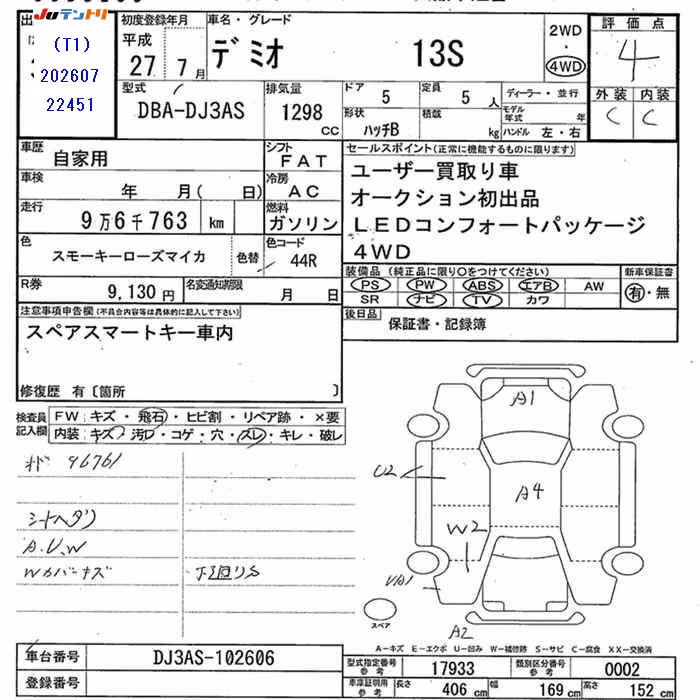 Juテントリ
(T1)
202607
22451
初度登録年月
平成
27 7月
車名・グレード
デミオ 13S
2WD
・
4WD
評価点
4
外装 内装
C C
型式
DBA-DJ3AS
排気量
1298
CC
ドア 5
定員 5 人
形状 ハッチB
積載 kg
ディーラー・並行
モデル年式 年
ハンドル 左・右
車歴 自家用
車検 年 月( 日)
走行 9万6千763 km
色 スモーキーローズマイカ 色替
シフト FAT
冷房 AC
燃料 ガソリン
色コード 44R
R券 9,130円
名変通知期限 月 日
セールスポイント(正常に機能するものに限ります)
ユーザー買取り車
オークション初出品
LEDコンフォートパッケージ
4WD
装備品(純正品に限り○をつけてください)
PS PW ABS エアB AW
SR ナビ TV カワ
新車保証書
有・無
後日品 保証書・記録簿
注意事項申告欄(不具合内容等は具体的に記入して下さい)
スペアスマートキー車内
修復歴 有〔箇所 〕
検査員記入欄
FW キズ・飛石・ヒビ割・リペア跡・×要
内装 キズ・汚レ・コゲ・穴・スレ・キレ・破レ
96761
シートヘタリ
A.U.W
下廻りS
A1
U2
A4
W2
A2
スペア
A-キズ E-エクボ U-凹み W-補修跡 S-サビ C-腐食 XX-交換済
車台番号 DJ3AS-102606
登録番号
型式指定番号参考 17933
類別区分番号参考 0002
車庫証明用参考 長さ 406 cm 幅 169 cm 高さ 152 cm